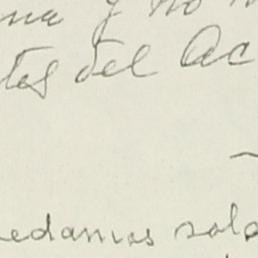 na y no
tes del Ac
edamos sola